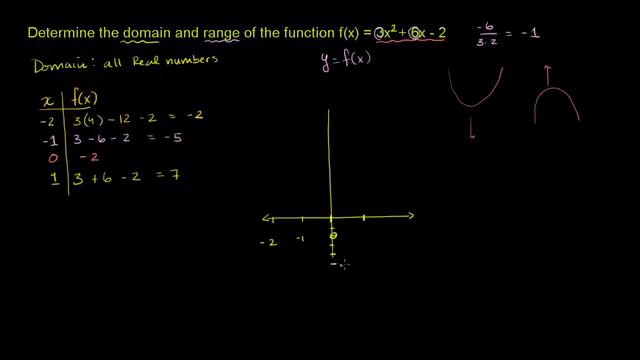 Determine the domain and range of the function f(x) = 3x² + 6x - 2
-6/3·2 = -1
y = f(x)
Domain: all Real numbers
x f(x)
-2 3(4) - 12 - 2 = -2
-1 3 - 6 - 2 = -5
0 -2
1 3 + 6 - 2 = 7
-2 -1 0